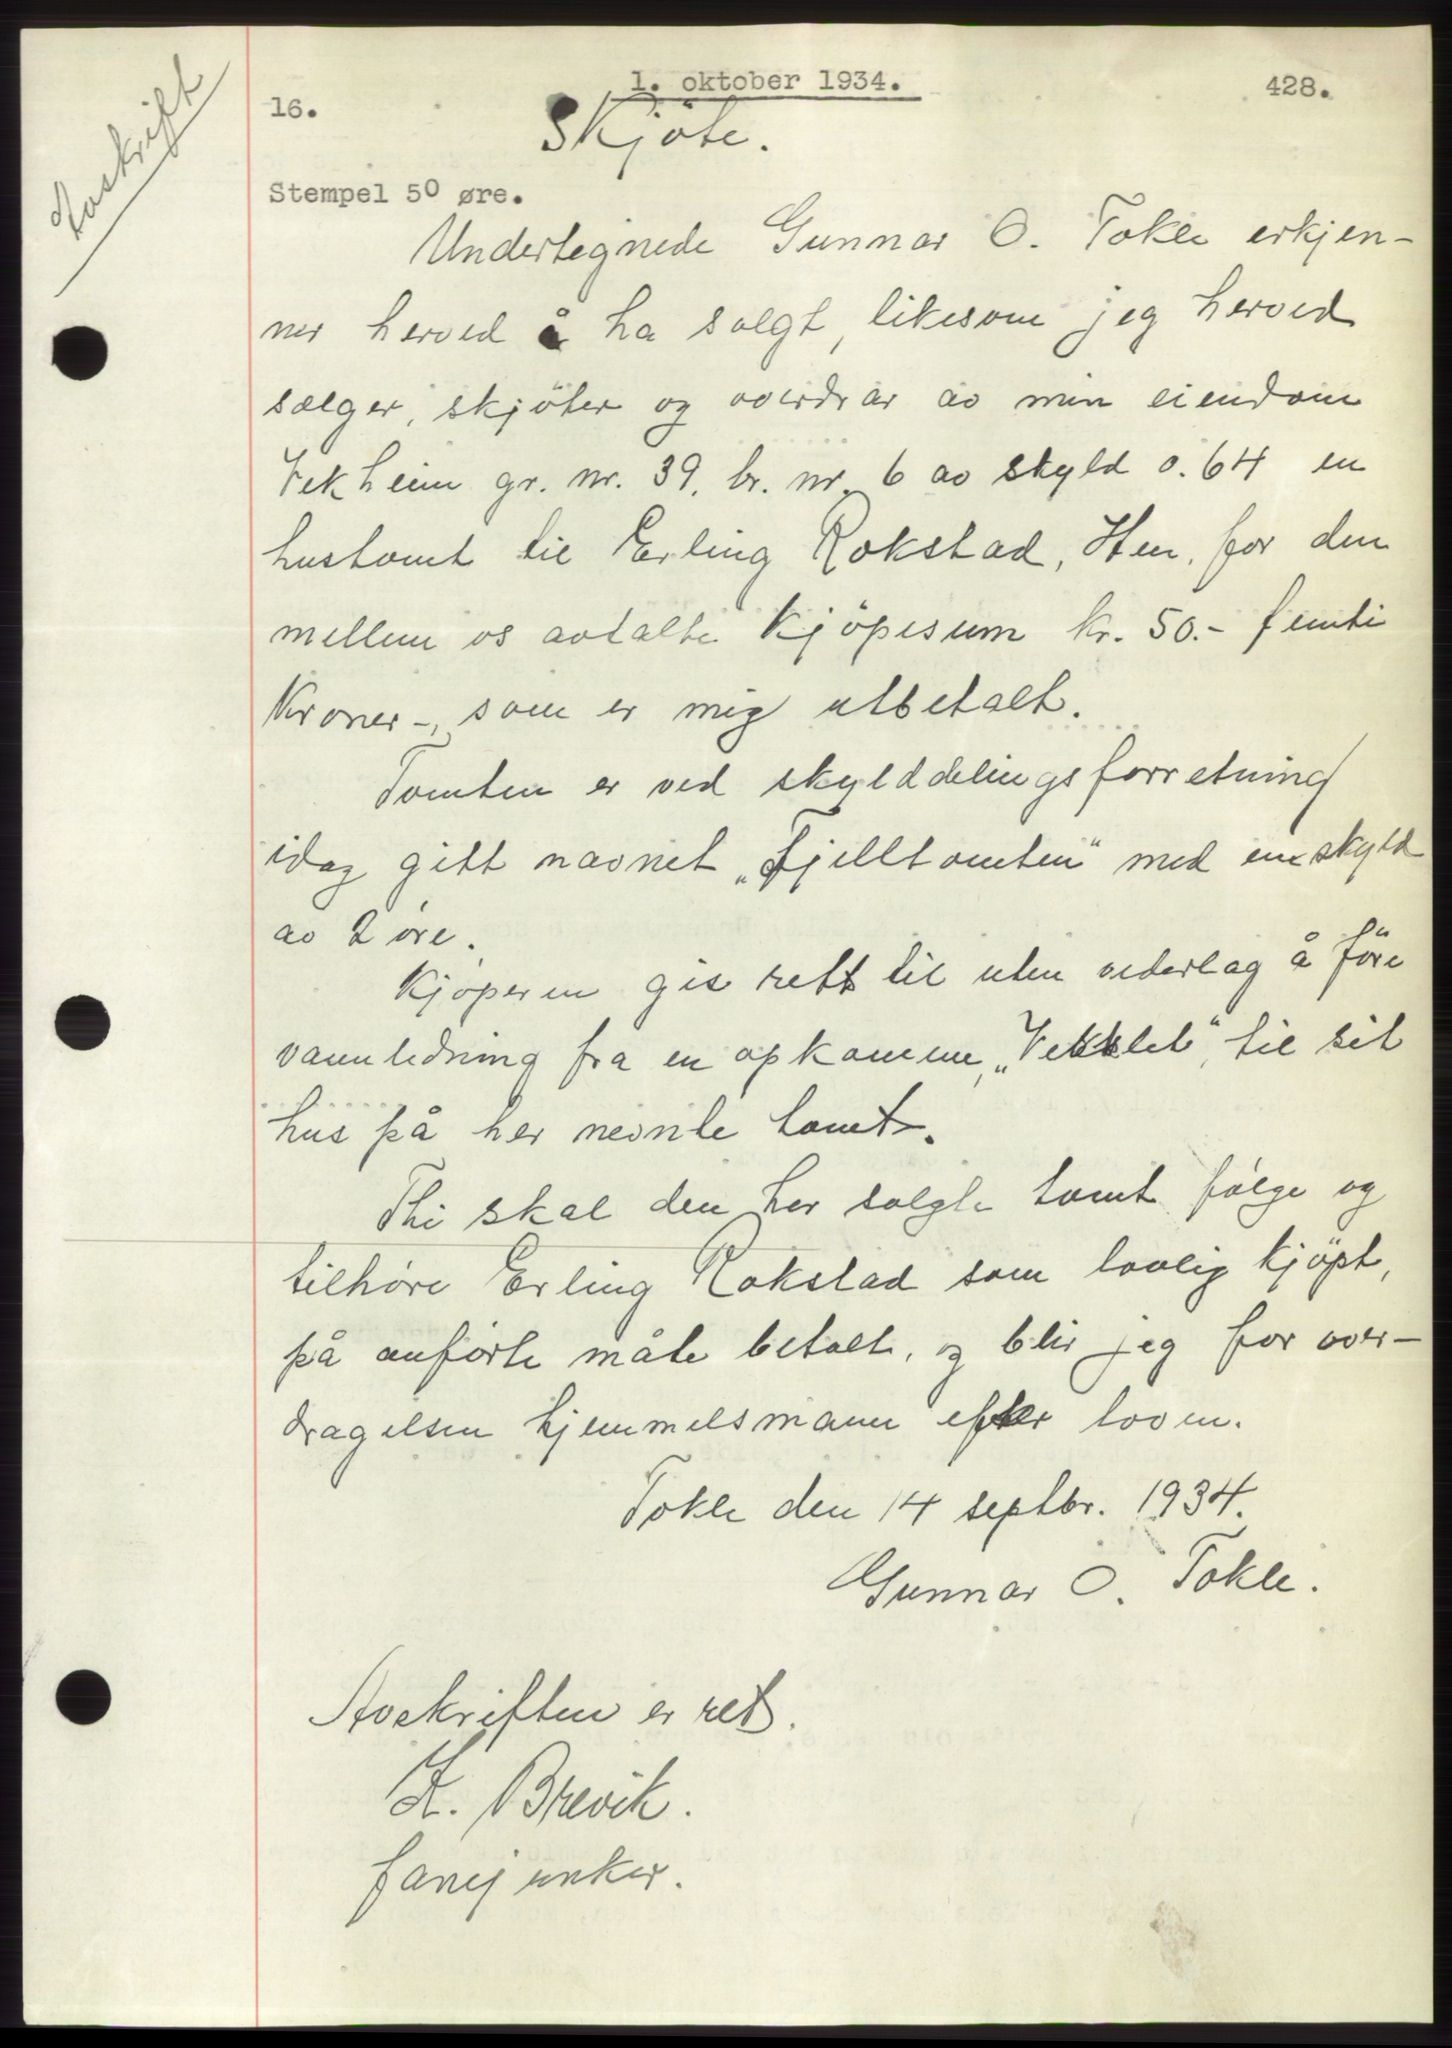 1. oktober 1934.
428.
16.
Avskrift
Skjöte.
Stempel 50 øre.
Undertegnede Gunnar O. Tokle erkjen-
ner herved å ha solgt, likesom jeg herved
sælger, skjöter og overdrar av min eiendom
Vekheim gr. nr. 39, br. nr. 6 av skyld 0.64 en
hustomt til Erling Rokstad, Hen, for den
mellem os avtalte kjöpesum kr. 50.- femti
kroner -, som er mig utbetalt.
Tomten er ved skylddelingsforretning
idag gitt navnet „Fjelltomten" med en skyld
av 2 øre.
Kjøperen gis rett til uten vederlag å före
vannledning fra en opkomme, „Vekklet", til sit
hus på her nevnte tomt.
Thi skal den her solgte tomt følge og
tilhøre Erling Rokstad som lovlig kjöpt,
på anførte måte betalt, og blir jeg for over-
dragelsen hjemmelsmann efter loven.
Tokle den 14 septbr. 1934.
Gunnar O. Tokle.
Avskriften er ret.
K. Brevik.
fanejunker.